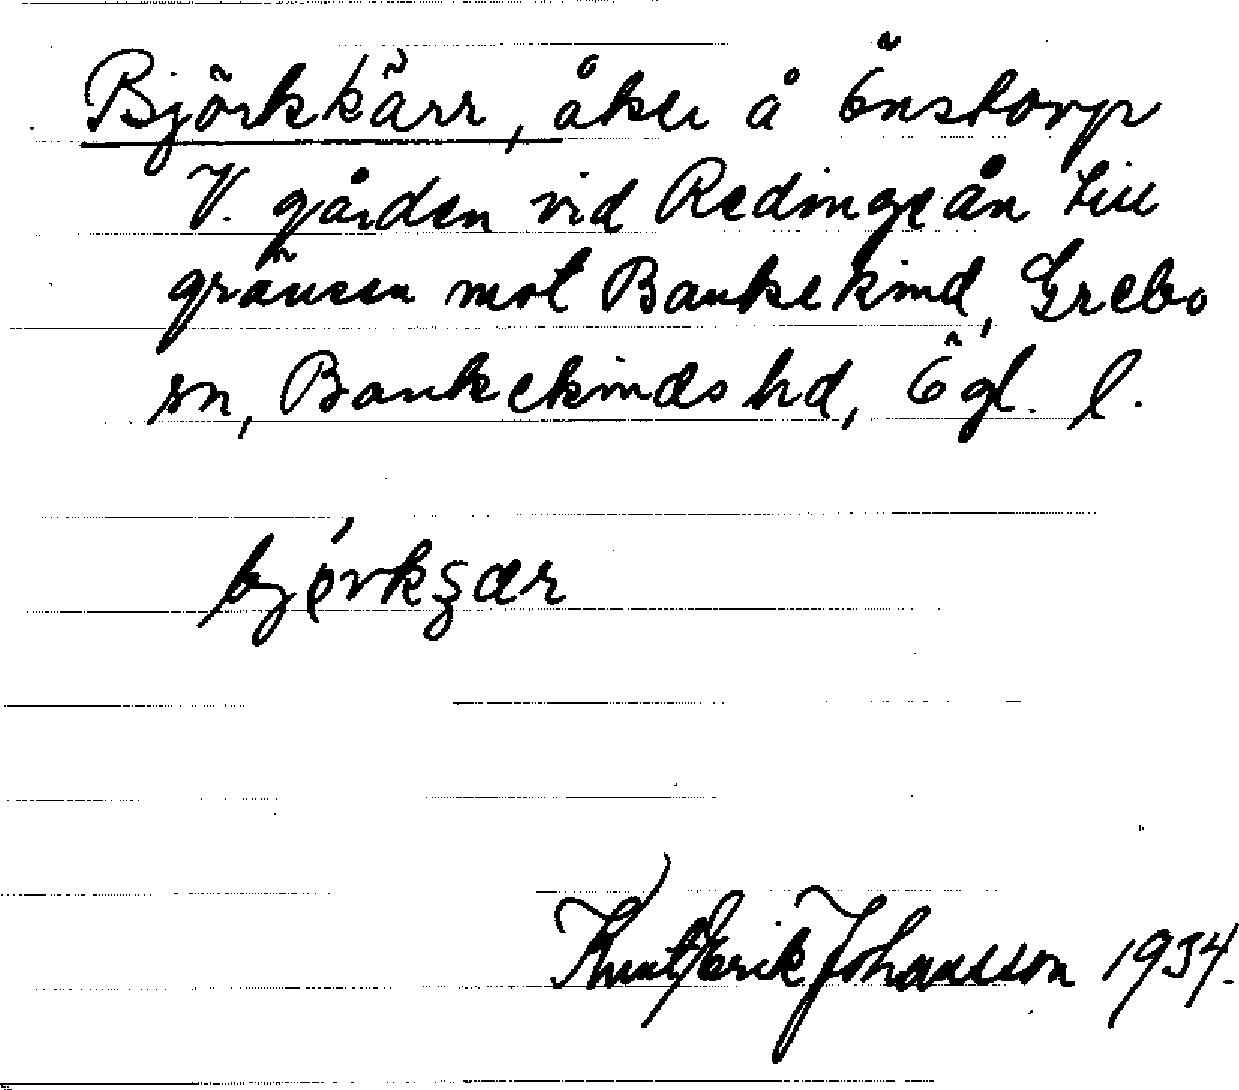 Björkkärr, åker å Önstorp
V. gården vid Redingeån till
gränsen mot Bankekind, Grebo
sn, Bankekinds hd, Ögl. l.
bjørkʒær
Knut Erik Johansson 1934.